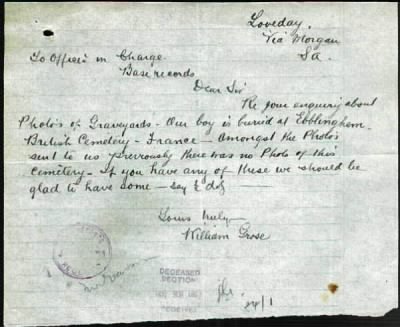 Loveday.
Via Morgan
SA.
To Officer in Charge.
Base records
Dear Sir
Re your enquiring about
Photo's of Graveyards - Our boy is buried at Ebblinghem
British Cemetery - France - amongst the Photo's
sent to us previously there was no Photo of this
Cemetery - if you have any of these we should be
glad to have some - say ½ doz
Yours truly
William Grose
DECEASED
24/1